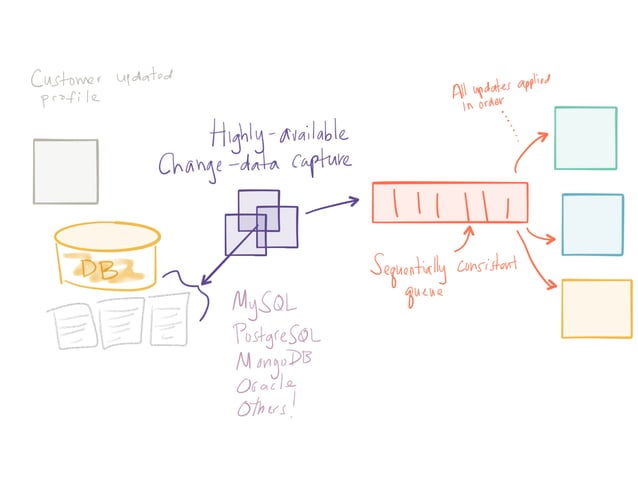 Customer updated
profile
Highly-available
Change-data capture
All updates applied
in order
DB
Sequentially consistent
queue
MySQL
PostgreSQL
MongoDB
Oracle
Others!